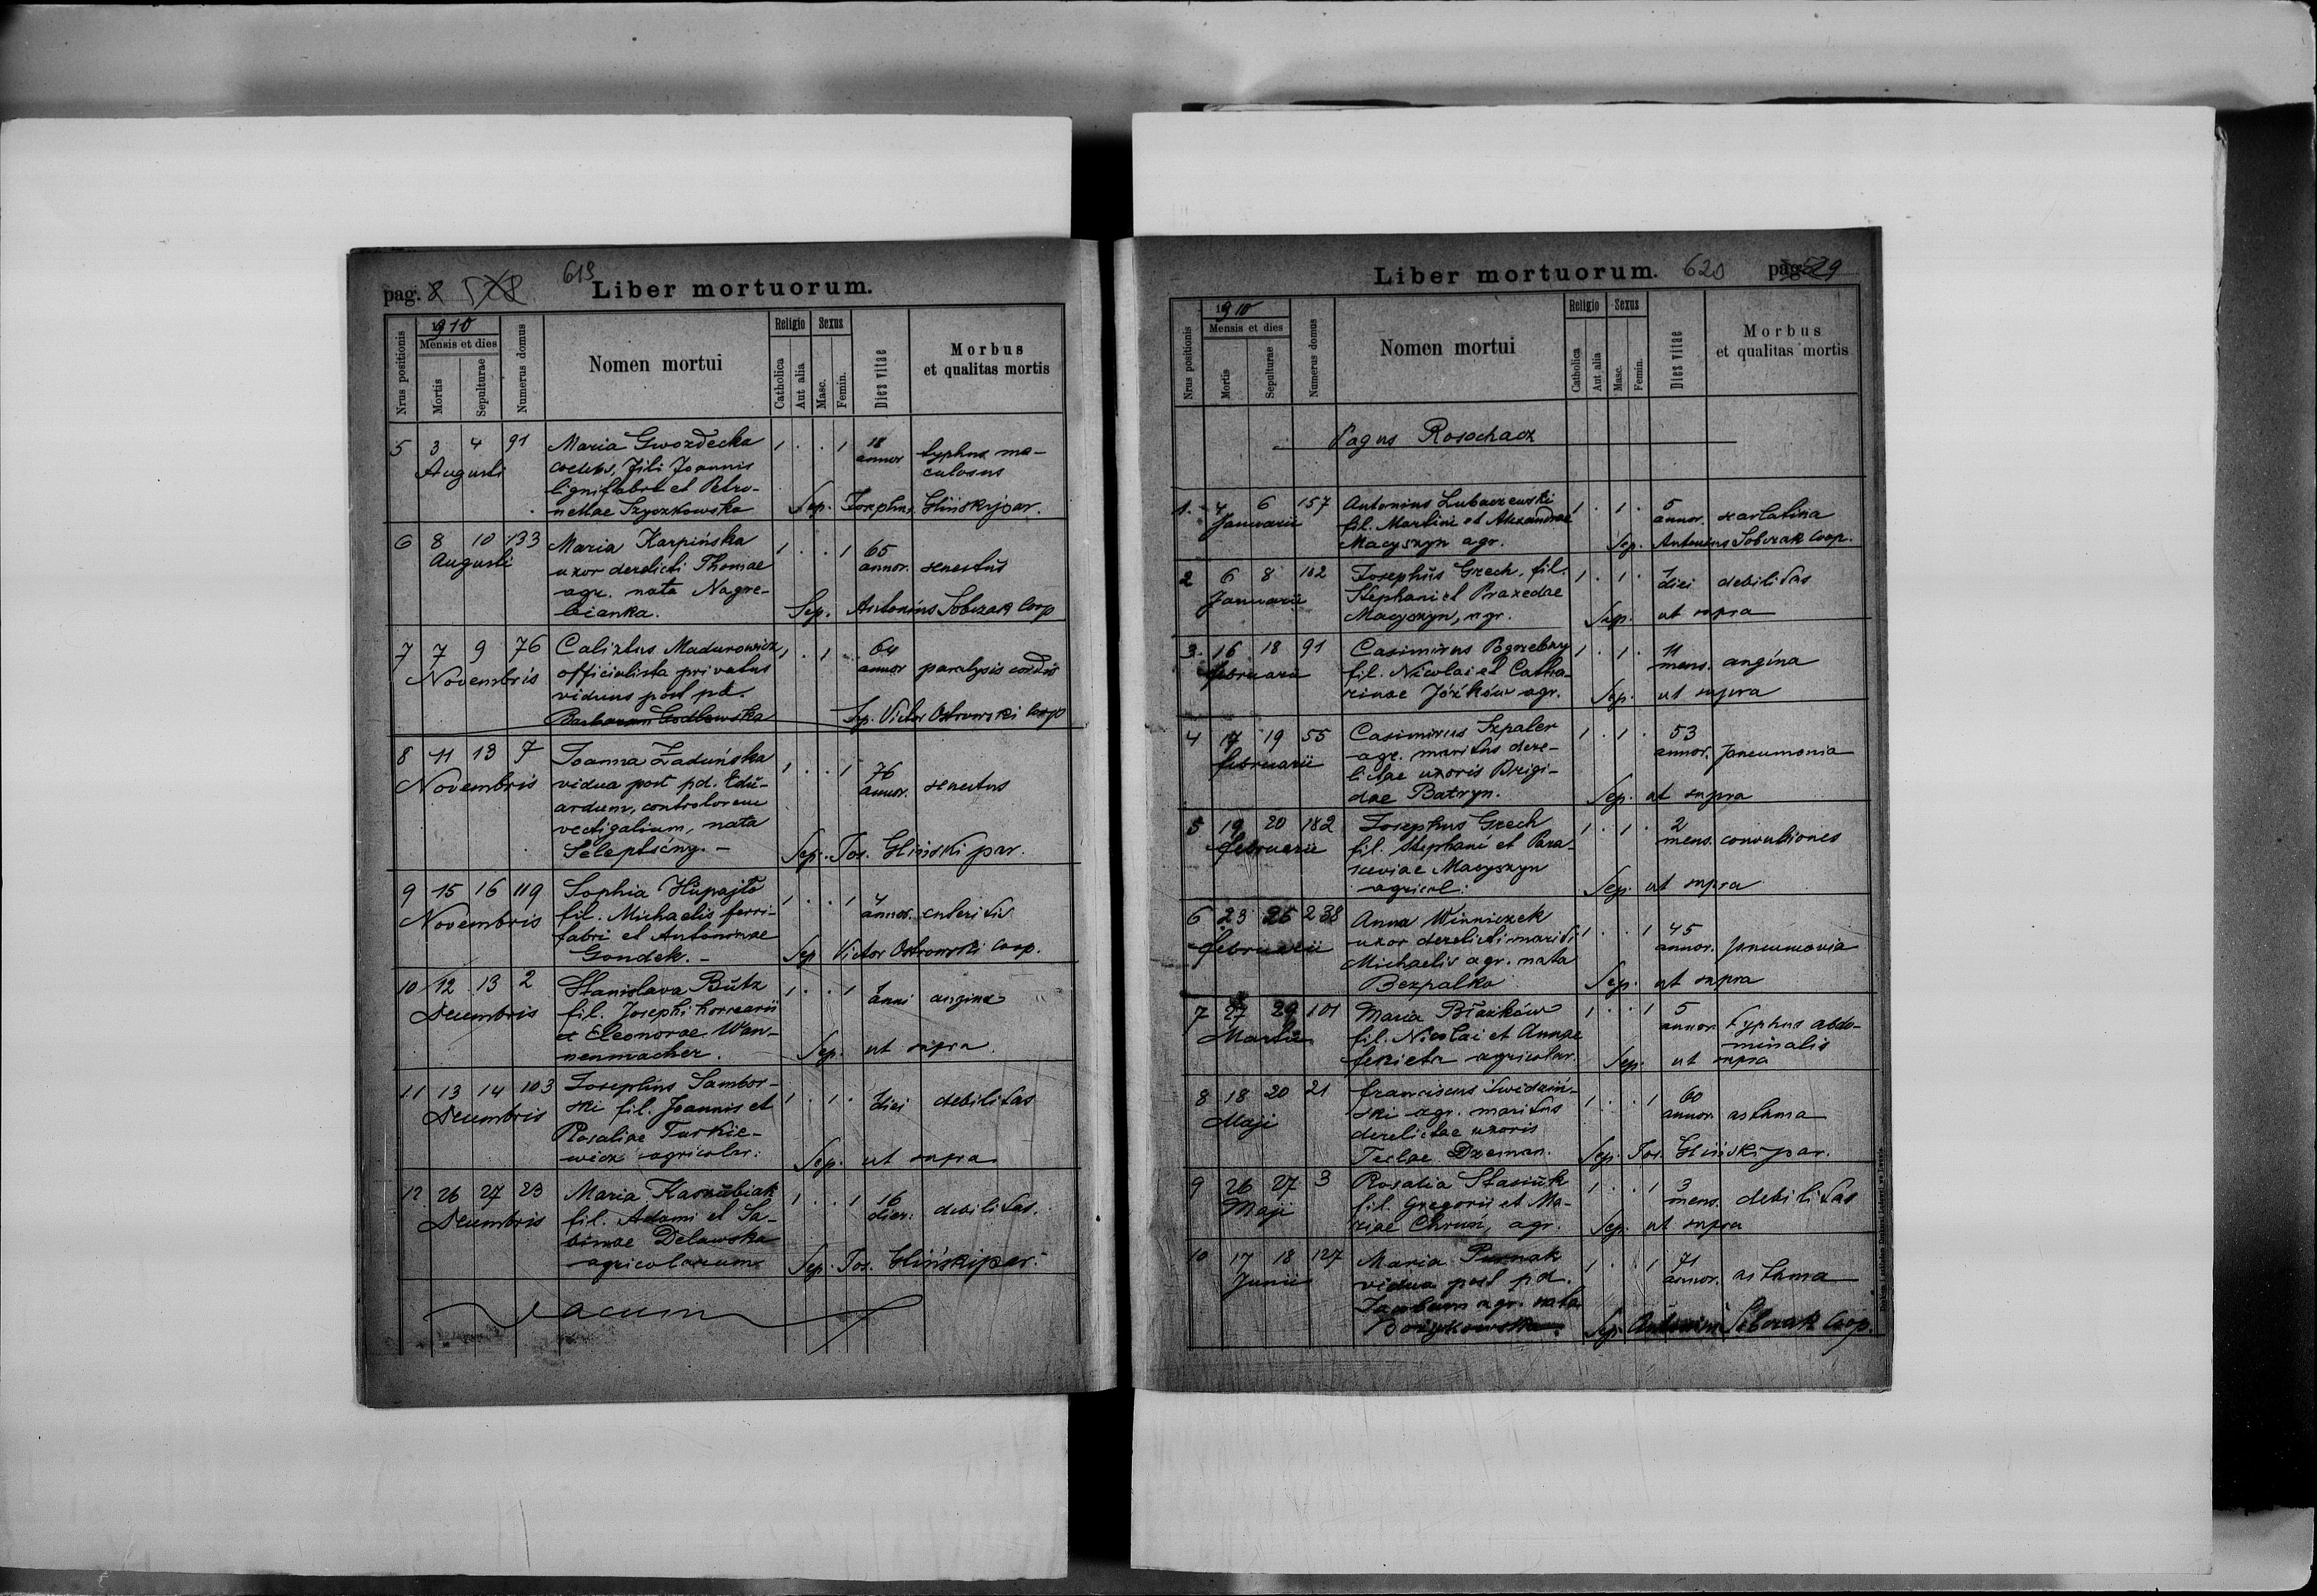 pag. 8 528 619 Liber mortuorum.
Nrus positionis
1910
Mensis et dies
Mortis
Sepulturae
Numerus domus
Nomen mortui
Religio
Catholica
Aut alia
Sexus
Masc.
Femin.
Dies vitae
Morbus
et qualitas mortis
5 3 4 91 Maria Gwozdecka 1 . . 1 18 typhus ma-
Augusti coelebs, fili Joannis annor culosus
lignifabri et Petro-
nellae Szyszkowska Sep. Josephus Gliński par.
6 8 10 133 Maria Karpińska 1 . . 1 65
Augusti uxor derelicti Thomae annor. senectus
agr. nata Nagre-
bianka. Sep. Antonius Sobczak Coop
7 7 9 76 Calixtus Madurowicz 1 . 1 64
Novembris officialista privatus annor paralysis cordis
viduus post pd.
Barbaram Godlewska Sep. Victor Ostrowski Coop
8 11 13 7 Joanna Żaduńska 1 . . 1 76
Novembris vidua post pd. Edu- annor. senectus
ardum, controlorem
vectigalium, nata
Sep. Jos. Gliński par.
9 15 16 119 Sophia Hupajło 1 . . 1 4
Novembris fil. Michaelis ferri- annor. enteritis
fabri et Antoninae
Gondek. - Sep Victor Ostrowski Coop.
10 12 13 2 Stanislava Butz 1 . . 1
Decembris fil. Josephi horrearii anni angina
et Eleonorae Wan-
nenmacher. Sep. ut supra.
11 13 14 103 Josephus Sambor- 1 . 1 .
Decembris ski fil. Joannis et diei debilitas
Rosaliae Turkie-
wicz agricolar: Sep. ut supra
12 26 27 23 Maria Karnubiak 1 . . 1 16
Decembris fil. Adami et Sa- dier: debilitas.
binae Delawska
agricolarum Sep. Jos. Gliński par.
Vacuum
Liber mortuorum. 620 pag. 529
Nrus positionis
1910
Mensis et dies
Mortis
Sepulturae
Numerus domus
Nomen mortui
Religio
Catholica
Aut alia
Sexus
Masc.
Femin.
Dies vitae
Morbus
et qualitas mortis
Pagus Rosochacz
1. 4 6 157 Antonius Lubaczewski 1 . 1 . 5
Januarii fil. Martini et Alexandrae annor. scarlatina
Macyszyn agr. Sep. Antonius Sobczak Coop.
2 6 8 182 Josephus Grech. fil. 1 . 1 .
Januarii Stephani et Praxedae diei debilitas
Macyszyn, agr. Sep. ut supra
3. 16 18 91 Casimirus Pogrzebny 1 . 1 . 11
februarii fil. Nicolai et Catha- mens. angina
rinae Józków agr. Sep. ut supra
4 17 19 55 Casimirus Szpaler 1 . 1 . 53
februarii agr. maritus dere- annor. pneumonia
lictae uxoris Brigi-
dae Batryn. Sep. ut supra
5 19 20 182 Josephus Grech 1 . 1 . 2
februarii fil. Stephani et Para- mens. convulsiones
sceviae Macyszyn
agricol: Sep. ut supra
6 23 25 238 Anna Winniczek 1 . . 1 45
februarii uxor derelicti mariti annor. pneumonia
Michaelis agr. nata
Bezpalko Sep. ut supra
7 27 29 101 Maria Błażków 1 . . 1 5 typhus abdo-
Martii fil. Nicolai et Annae annor. minalis
agricolar. Sep. ut supra
8 18 20 21 Franciscus Swidziń- 1 . . 1 60
Maji ski agr. maritus annor. asthma
derelictae uxoris
Teclae Dzeman. Sep. Jos. Gliński par.
9 26 27 3 Rosalia Stasiuk 1 . . 1 3
Maji fil. Gregorii et Ma- mens. debilitas
riae Chruń, agr. Sep. ut supra
10 17 18 127 Maria 1 . . 1 71
Junii vidua post pd. annor. asthma
Jacobum agr. nata
Bożykowska. Sep. Antonius Sobczak Coop.